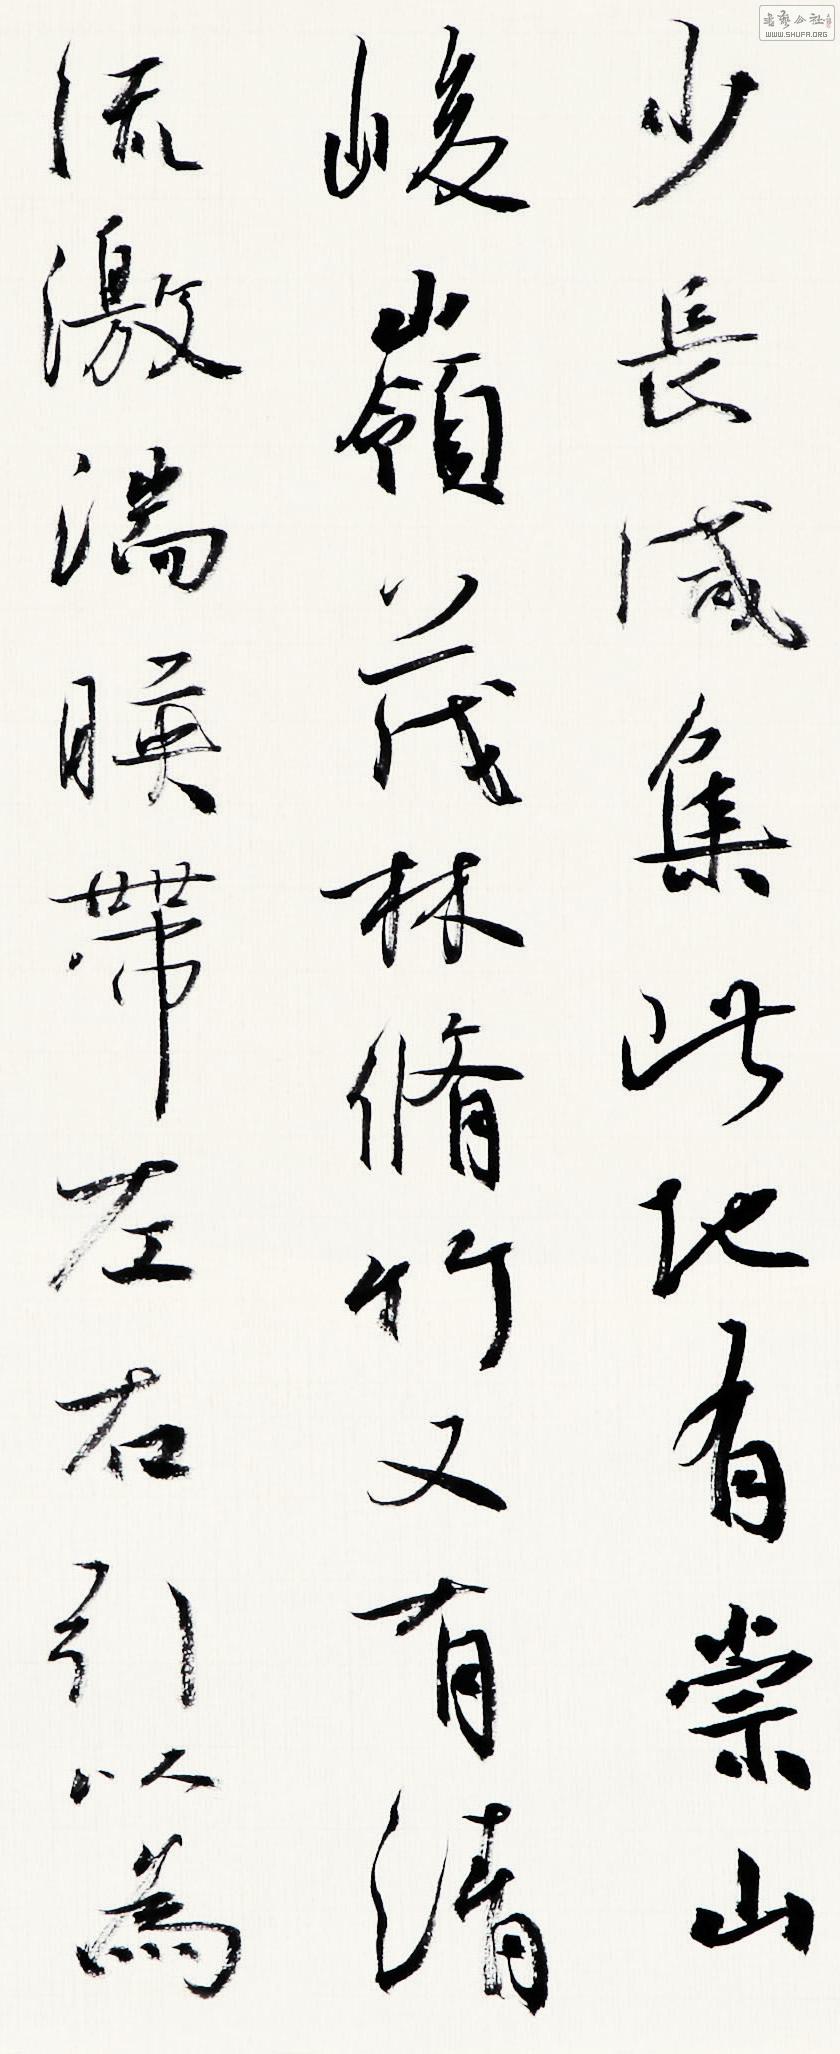 少長咸集此地有崇山
峻嶺茂林脩竹又有清
流激湍暎帶左右引以為
WWW.SHUFA.ORG